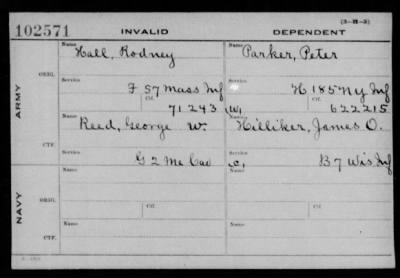 (3—H—3)
102571 INVALID DEPENDENT
Name Name
Hall, Rodney Parker, Peter
ARMY
ORIG.
Service Service
F 57 Mass Inf H 185 Ny Inf
Ctf. Ctf.
71243 (W) 622215
Name Name
Reed, George W. Hilliker, James O.
CTF.
Service Service
G 2 Me Cav (C) B 7 Wis Inf
NAVY
Name Name
ORIG.
Ctf. Ctf.
Name Name
CTF.